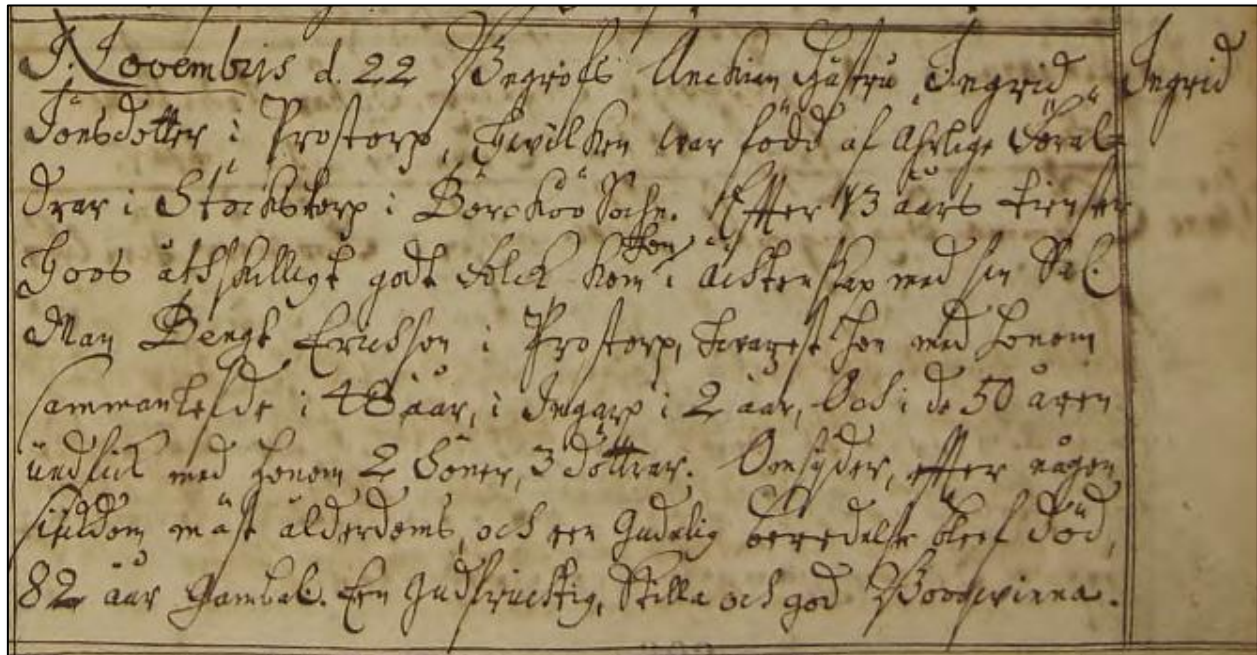 Novembris d. 22 Begrofs Enckian Hustru Ingrid Ingrid
Jönsdotter i Prostorp, hwilken war född af Ährlige Föräl-
drar i Stockstorp i Sochn. Effter 13 åårs tienst
hoos åthskilligt godt folck kom hon i ächtenskap med sin Sal.
Man Bengt Erichson i Prostorp, hwarest hon med honom
sammanlefde i 48 åår, i Ingarp i 2 åår, Och i de 50 åren
undfick med honom 2 Söner, 3 döttrar. Omsyder, effter någon
siukdom mäst ålderdoms, och een Gudelig beredelse bleef död,
82 åår Gammal. Een Gudfruchtig, Stilla och god Qwinna.